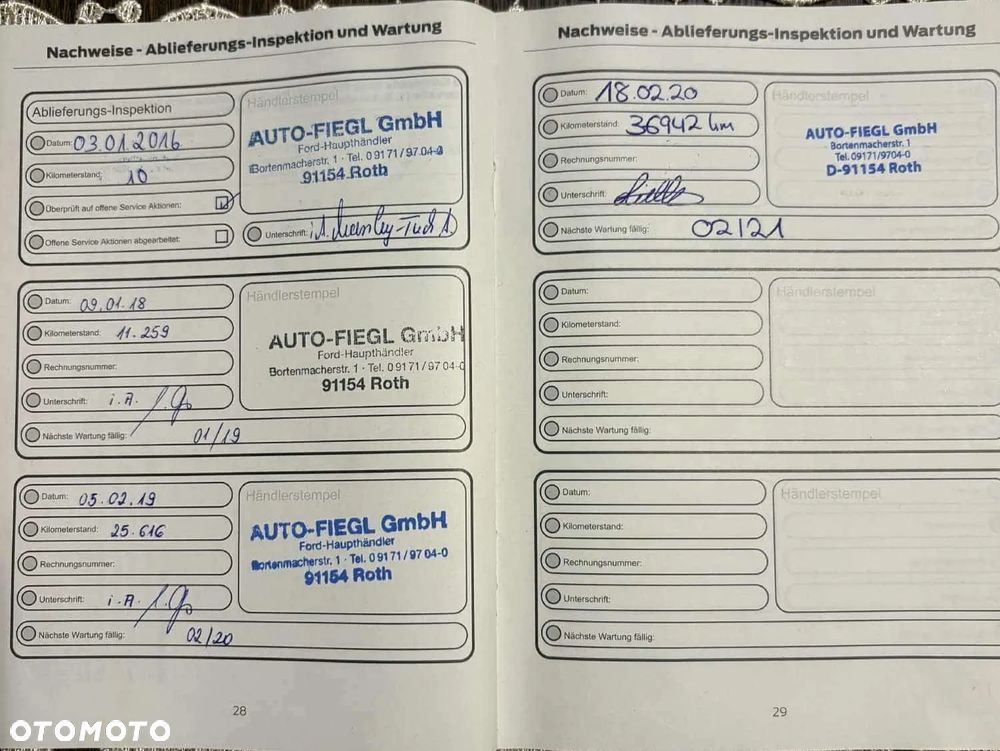 Nachweise - Ablieferungs-Inspektion und Wartung
Ablieferungs-Inspektion
Datum: 03.01.2016
Kilometerstand: 10
Überprüft auf offene Service Aktionen:
Offene Service Aktionen abgearbeitet:
Händlerstempel
AUTO-FIEGL GmbH
Ford-Haupthändler
Bortenmacherstr. 1 · Tel. 0 91 71 / 97 04-0
91154 Roth
Unterschrift:
Datum: 09.01.18
Kilometerstand: 11.259
Rechnungsnummer:
Unterschrift: i.A.
Nächste Wartung fällig: 01/19
Händlerstempel
AUTO-FIEGL GmbH
Ford-Haupthändler
Bortenmacherstr. 1 · Tel. 0 91 71 / 97 04-0
91154 Roth
Datum: 05.02.19
Kilometerstand: 25.616
Rechnungsnummer:
Unterschrift: i.A.
Nächste Wartung fällig: 02/20
Händlerstempel
AUTO-FIEGL GmbH
Ford-Haupthändler
Bortenmacherstr. 1 · Tel. 0 91 71 / 97 04-0
91154 Roth
28
Nachweise - Ablieferungs-Inspektion und Wartung
Datum: 18.02.20
Kilometerstand: 36942 km
Rechnungsnummer:
Unterschrift:
Nächste Wartung fällig: 02/21
Händlerstempel
AUTO-FIEGL GmbH
Bortenmacherstr. 1
Tel. 09171/9704-0
D-91154 Roth
Datum:
Kilometerstand:
Rechnungsnummer:
Unterschrift:
Nächste Wartung fällig:
Händlerstempel
Datum:
Kilometerstand:
Rechnungsnummer:
Unterschrift:
Nächste Wartung fällig:
Händlerstempel
29
OTOMOTO